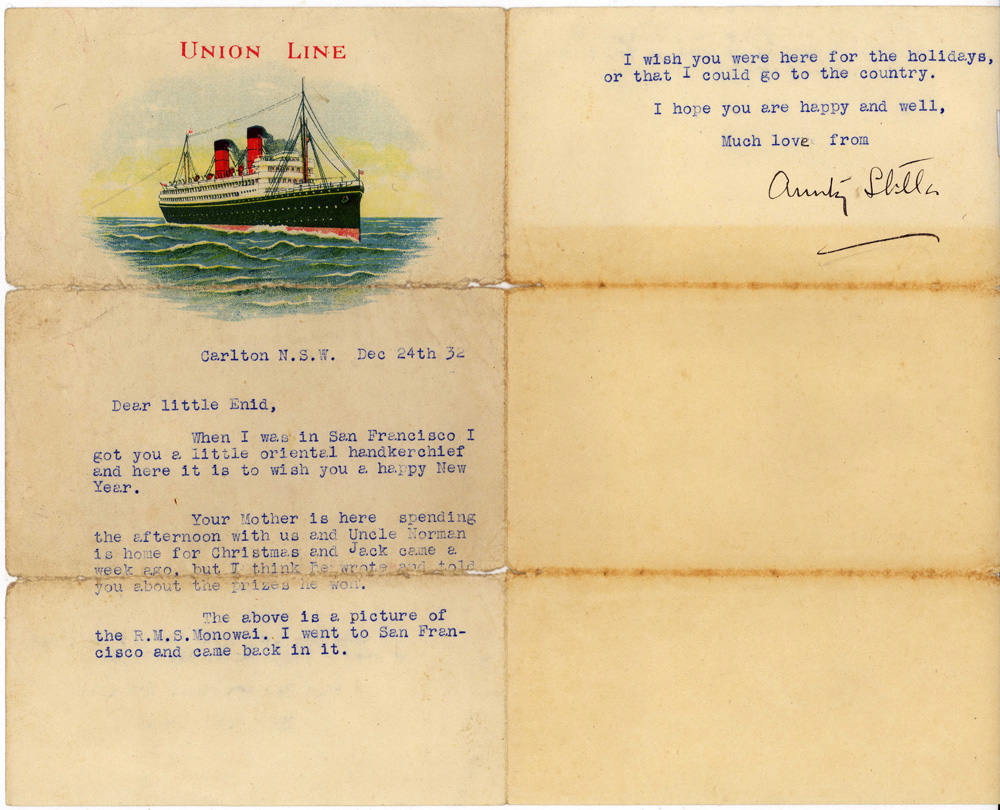 UNION LINE
Carlton N.S.W. Dec 24th 32
Dear little Enid,
When I was in San Francisco I
got you a little oriental handkerchief
and here it is to wish you a happy New
Year.
Your Mother is here spending
the afternoon with us and Uncle Norman
is home for Christmas and Jack came a
week ago, but I think he wrote and told
you about the prizes he won.
The above is a picture of
the R.M.S.Monowai. I went to San Fran-
cisco and came back in it.
I wish you were here for the holidays,
or that I could go to the country.
I hope you are happy and well,
Much love from
Aunty Stella